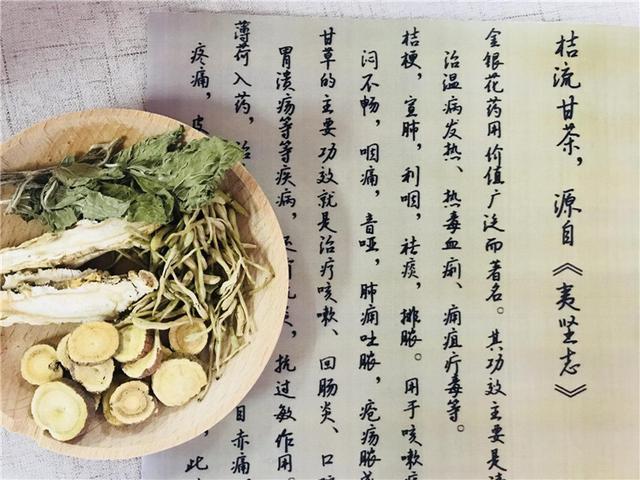 桔流甘茶，源自《夷坚志》
金银花药用价值广泛而著名。其功效主要是清
治温病发热、热毒血痢、痈疽疔毒等。
桔梗，宣肺，利咽，祛痰，排脓。用于咳嗽痰
闷不畅，咽痛，音哑，肺痈吐脓，疮疡脓
甘草的主要功效就是治疗咳嗽、回肠炎、口
胃溃疡等等疾病，还 抗过敏作用。
薄荷入药，治 目赤痛
疼痛，皮 此